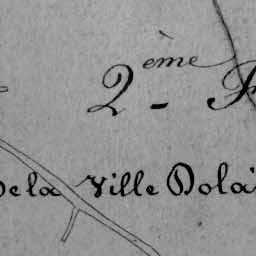 2ème
De la Ville Dola